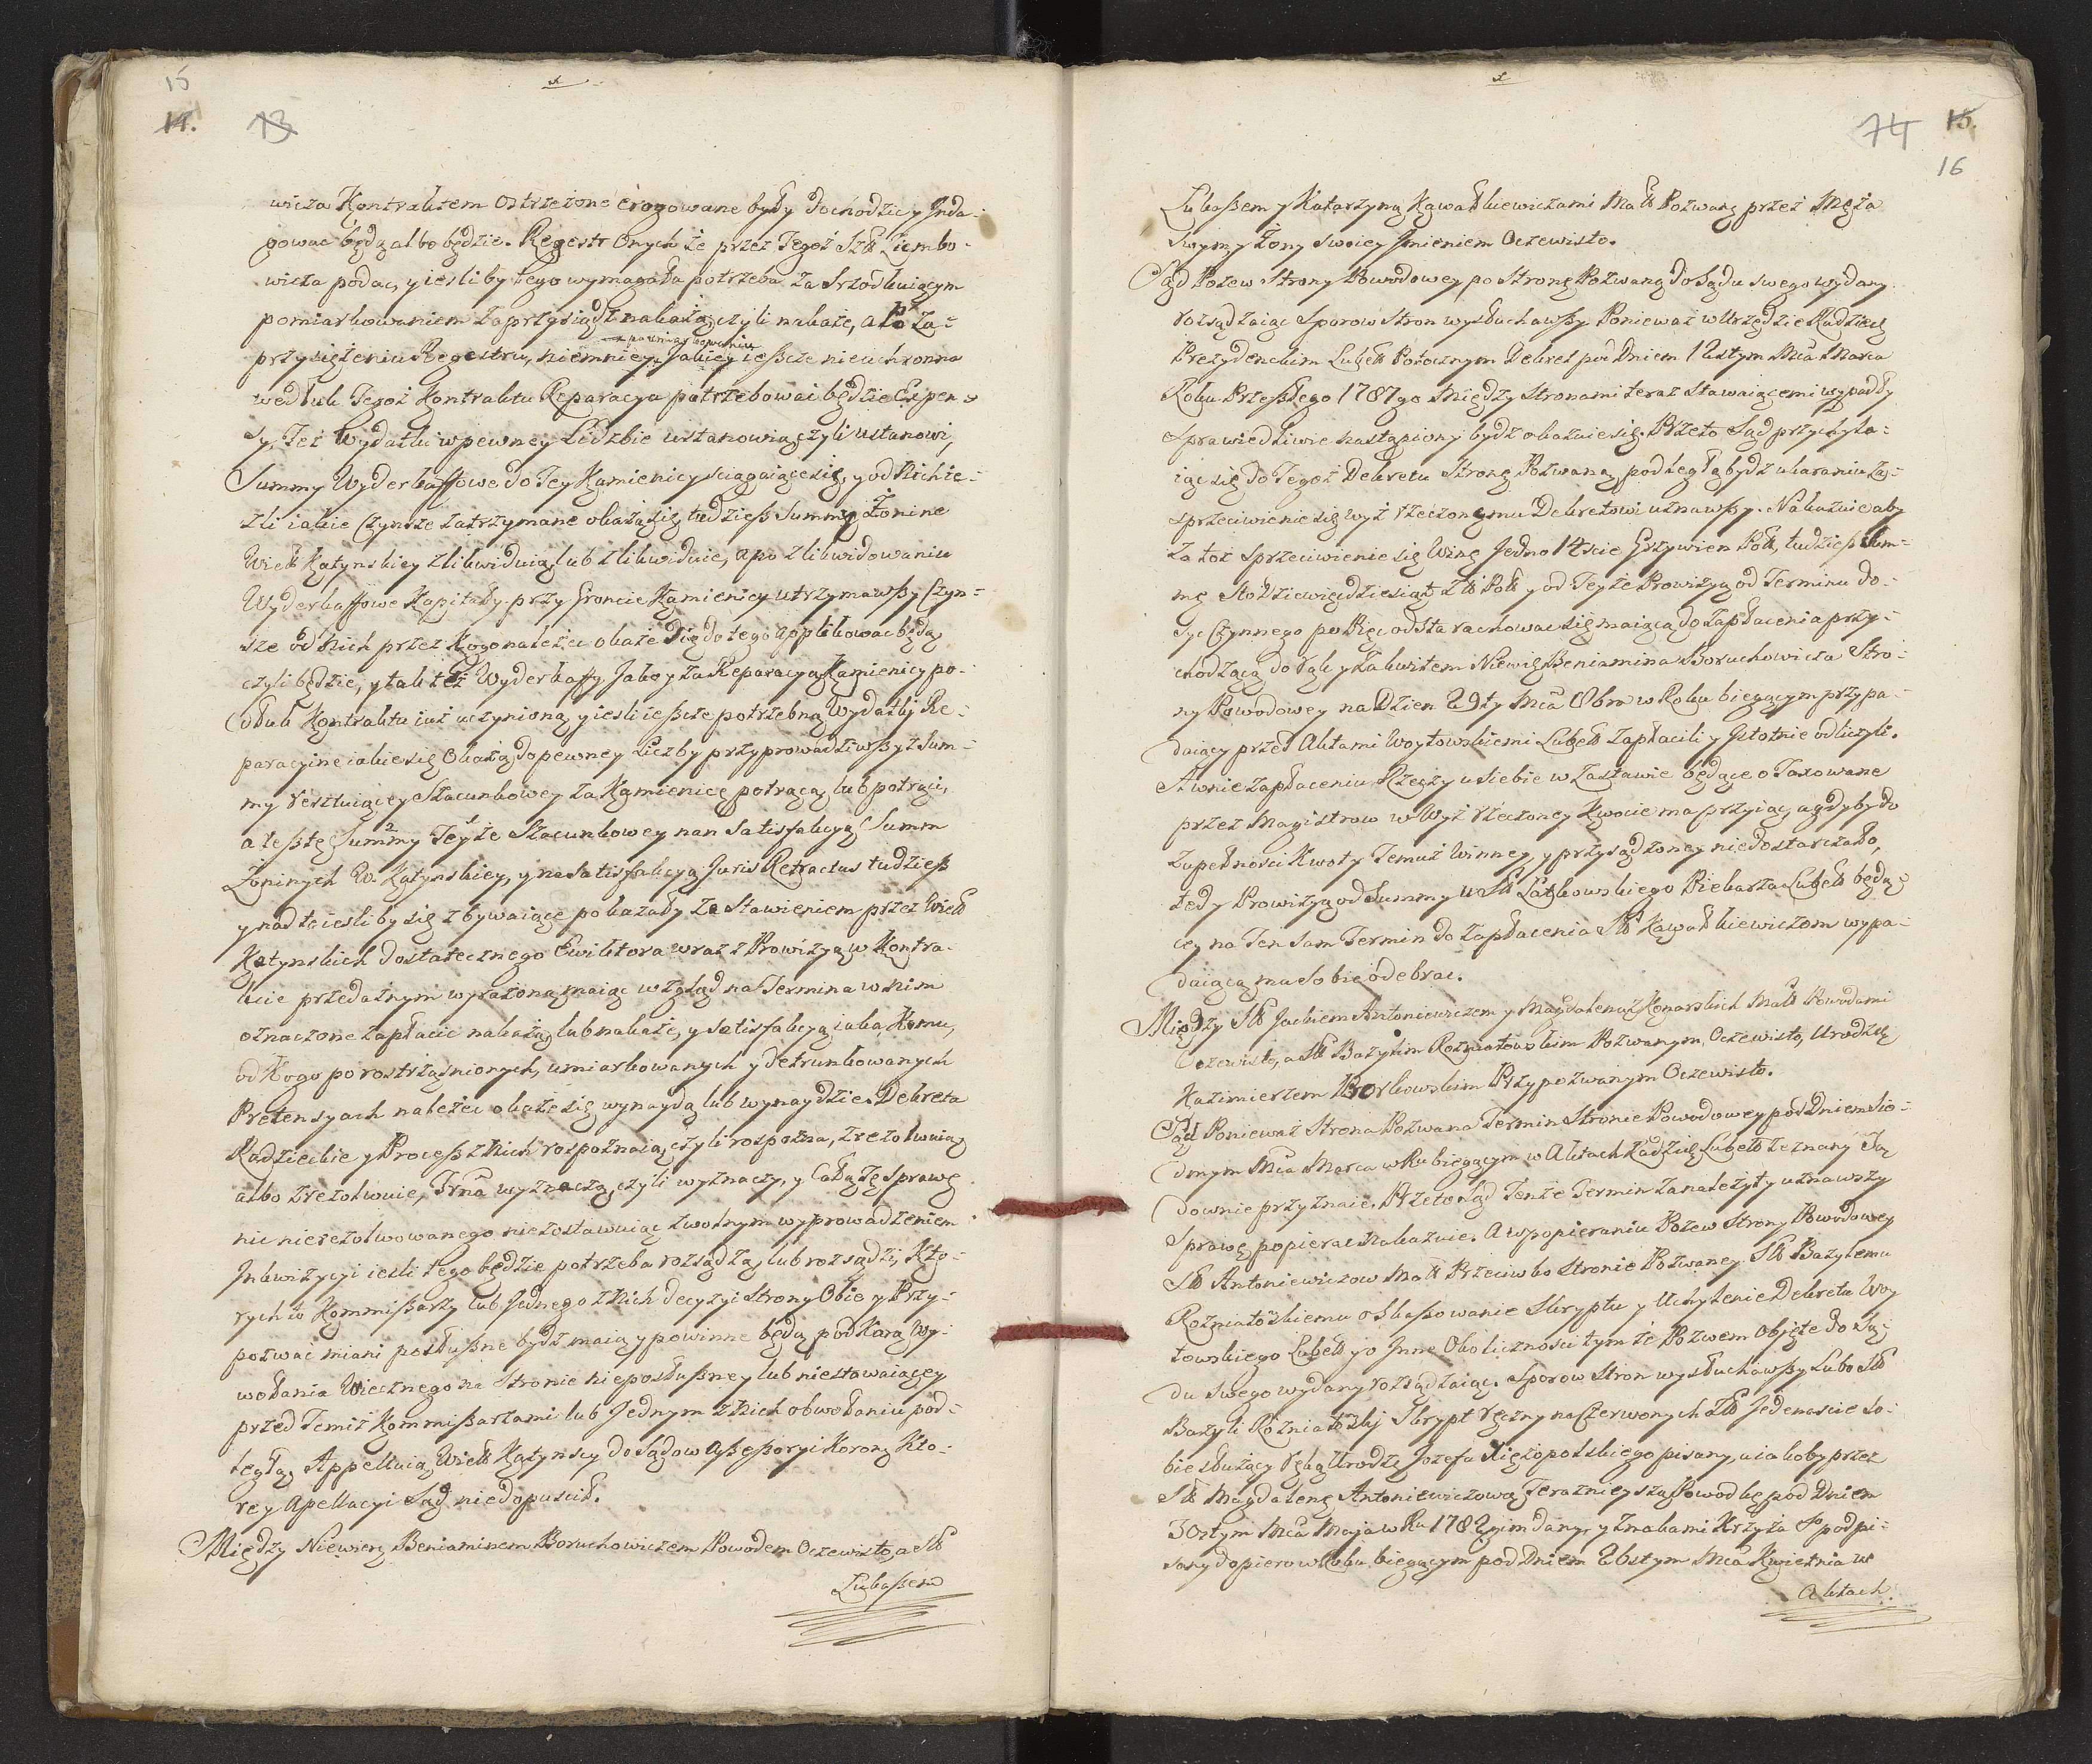 15
14. 13
wicza Kontraktem ostrzeżone erogowane były dochodzic y Inda-
gowac będą albo będzie. Regestr Onych że przez Tegoż Szl Ziembo-
wicza podac, y iesliby tego wymagała potrzeba za Srzodkuiącym
pomiarkowaniem zaprzysiądz nakażą, czyli nakaże, a Po Za-
x pomiarkowaniu
przysiężeniu Regestru, niemniey Jakiey ieszcze nieuchronna
według Tegoż Kontraktu Reparacya potrzebowac będzie Expen-
sy, Też Wydatki w pewney Lidzbie ustanowią, czyli ustanowi,
Summy Wyderkaffowe do Tey Kamienicy sciągaiące się, y od Nich ie-
zli iakie Czynsze zatrzymane okażą się, tudziesz Summę Żonine
Wielk Kątynskiey zlikwiduią, lub zlikwiduie, a po zlikwidowaniu
Wyderkaffowe Kapitały przy Groncie Kamienicy utrzymawszy Czyn-
sze od Nich przez Kogo należec okaże się do tego applikowac będą
czyli będzie, y tak też Wyderkaffy Jako y za Reparacyą Kamienicy po-
dług Kontraktu iuż uczynioną y iesli ieszcze potrzebną Wydatki Re-
paracyine iakie się Okażą do pewney Liczby przyprowadziwszy z Sum-
my resztuiącey Szacunkowey za Kamienicę potrącą, lub potrąci,
a resztę Summy Teyże Szacunkowey nan Satisfakcyą Summ
Żoninych W. Kątynskiey, y na Satisfakcyą Juris Retractus tudziesz
y nad to iesliby się zbywaiące pokazały Ze Stawieniem przez Wielk
Kątynskich dostatecznego Ewiktora wraz z Prowizyą w Kontra-
kcie przedażnym wyrażoną, maiąc wzgląd na Termina w nim
oznaczone zapłacic nakażą, lub nakaże, y satisfakcyą iaka, Komu,
od Kogo po rostrząsnionych, umiarkowanych y detrunkowanych
Pretensyach należec okaże się wynaydą lub wynaydzie. Dekreta
Radzieckie y Process z Nich rospoznaią, czyli rospozna, zrezolwuią
albo zrezolwuie, Trña wyznaczą, czyli wyznaczy, y Całą Tę Sprawę
nic nierezolwowanego niezostawuiąc zwodnym wyprowadzeniem
Inkwizycyi iezli tego będzie potrzeba rozsądzą, lub rozsądzi, Kto-
rych to Kommissarzy lub Jednego z Nich decyzyi Strony Obie y Przy-
pozwac miani posłuszne bydz maią y powinne będą pod Karą Wy-
wołania Wiecznego na Stronie nieposłuszney lub niestawaiącey
przed Temiż Kommissarzami lub Jednym z Nich obwołaniu pod-
ległą, Appelluią Wielk Kątynscy do Sądow Assessoryi Korony Kto-
rey Apellacyi Sąd niedopuscił.
Między Niewierż Beniaminem Boruchowiczem Powodem Oczewisto, a Sł
Łukaszem
74 15.
16
Łukaszem y Katarzyną Kawałkiewiczami Małż Pozwaną przez Męża
swym y Żony swoiey Jmieniem Oczewisto.
Sąd Pozew Strony Powodowey po Stronę Pozwaną do Sądu swego wydany
rozsądzaiąc Sporow Stron wysłuchawszy Ponieważ w Urzędzie Radziec
Prezydenckim Lubelk Potocznym Dekret pod Dniem 12stym Mca Marca
Roku Przeszłego 1787go Między Stronami teraz Stawaiącemi wypadły
Sprawiedliwie nastąpiony bydz okazuie się. Przeto Sąd przychyla-
iąc się do Tegoż Dekretu Stronę Pozwaną, podległą bydz ukaraniu Za
sprzeciwienie się wyż rzeczonemu Dekretowi uznawszy. Nakazuie aby
za toż sprzeciwienie się Winę Jedno 14scie Grzywien Polk, tudziesz Sum-
mę Sto Dziewięcdziesiąt Zł Polk y od Teyże Prowizyą od Terminu do-
syc Czynnego po Pięc od Sta rachowac się maiącą do zapłacenia przy-
chodzącą do rąk y za kwitem Niewiż Beniamina Boruchowicza Stro-
ny Powodowey na Dzien 29ty Mca 8bra w Roku biegącym przypa-
daiący przed Aktami Woytowskiemi Lubelk Zapłacili y Istotnie odliczyli.
A w niezapłaceniu Rzeczy u siebie w Zastawie będące o Taxowane
przez Magistrow w Wyż rzeczoney kwocie ma przyiąc, a gdyby do
zupełnosci Kwoty Temuż Winney y przysądzoney niedostarczało,
tedy Prowizyą od Summy u Sł Łatkowskiego Piekarza Lubelk będą-
cey na Ten sam Termin do zapłacenia Sł Kawałkiewiczom wypa-
daiącą ma sobie odebrac.
Między Sł Jackiem Antoniewiczem y Magdaleną z Konarskich Małż Powodami
Oczewisto, a Sł Bazylim Rozniatowskim Pozwanym, Oczewisto, Urodzlę
Kazimierzem Borkowskim Przypozwanym Oczewisto.
Sąd Ponieważ Strona Pozwana Termin Stronie Powodowey pod Dniem Sio-
dmym Mca Marca w Ru biegącym w Aktach Radziec Lubelk Zeznany Są
downie przyznaie. Przeto Sąd Tenże Termin za należyty uznawszy
Sprawę popierac Nakazuie. A w popieraniu Pozew Strony Powodowey
Sł Antoniewiczow Małż Przeciwko Stronie Pozwaney Sł Bazylemu
Rozniatowskiemu o Skassowanie Skryptu y Uchylenie Dekretu Woy
towskiego Lubelk y o Jnne Okolicznosci tymże Pozwem Objęte do Są-
du swego wydany rozsądzaiąc. Sporow Stron wysłuchawszy Lubo Sł
Bazyli Rozniatowski Skrypt ręczny na Czerwonych Zł Jedenascie so-
bie służący ręką Urodze Jozefa Xiężopolskiego pisany, a iakoby przez
Sł Magdalenę Antoniewiczową Teraznieyszą Powodkę pod Dniem
30stym Mca Maja w Ru 1782gim dany, y Znakami Krzyża + podpi-
sany dopiero w Roku biegącym pod Dniem 26stym Mca Kwietnia w
Aktach